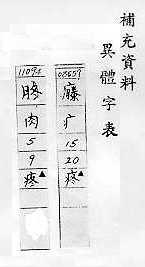 補充資料
異體字表
08657
疒
15
20
疼▲
肉
5
9
疼▲